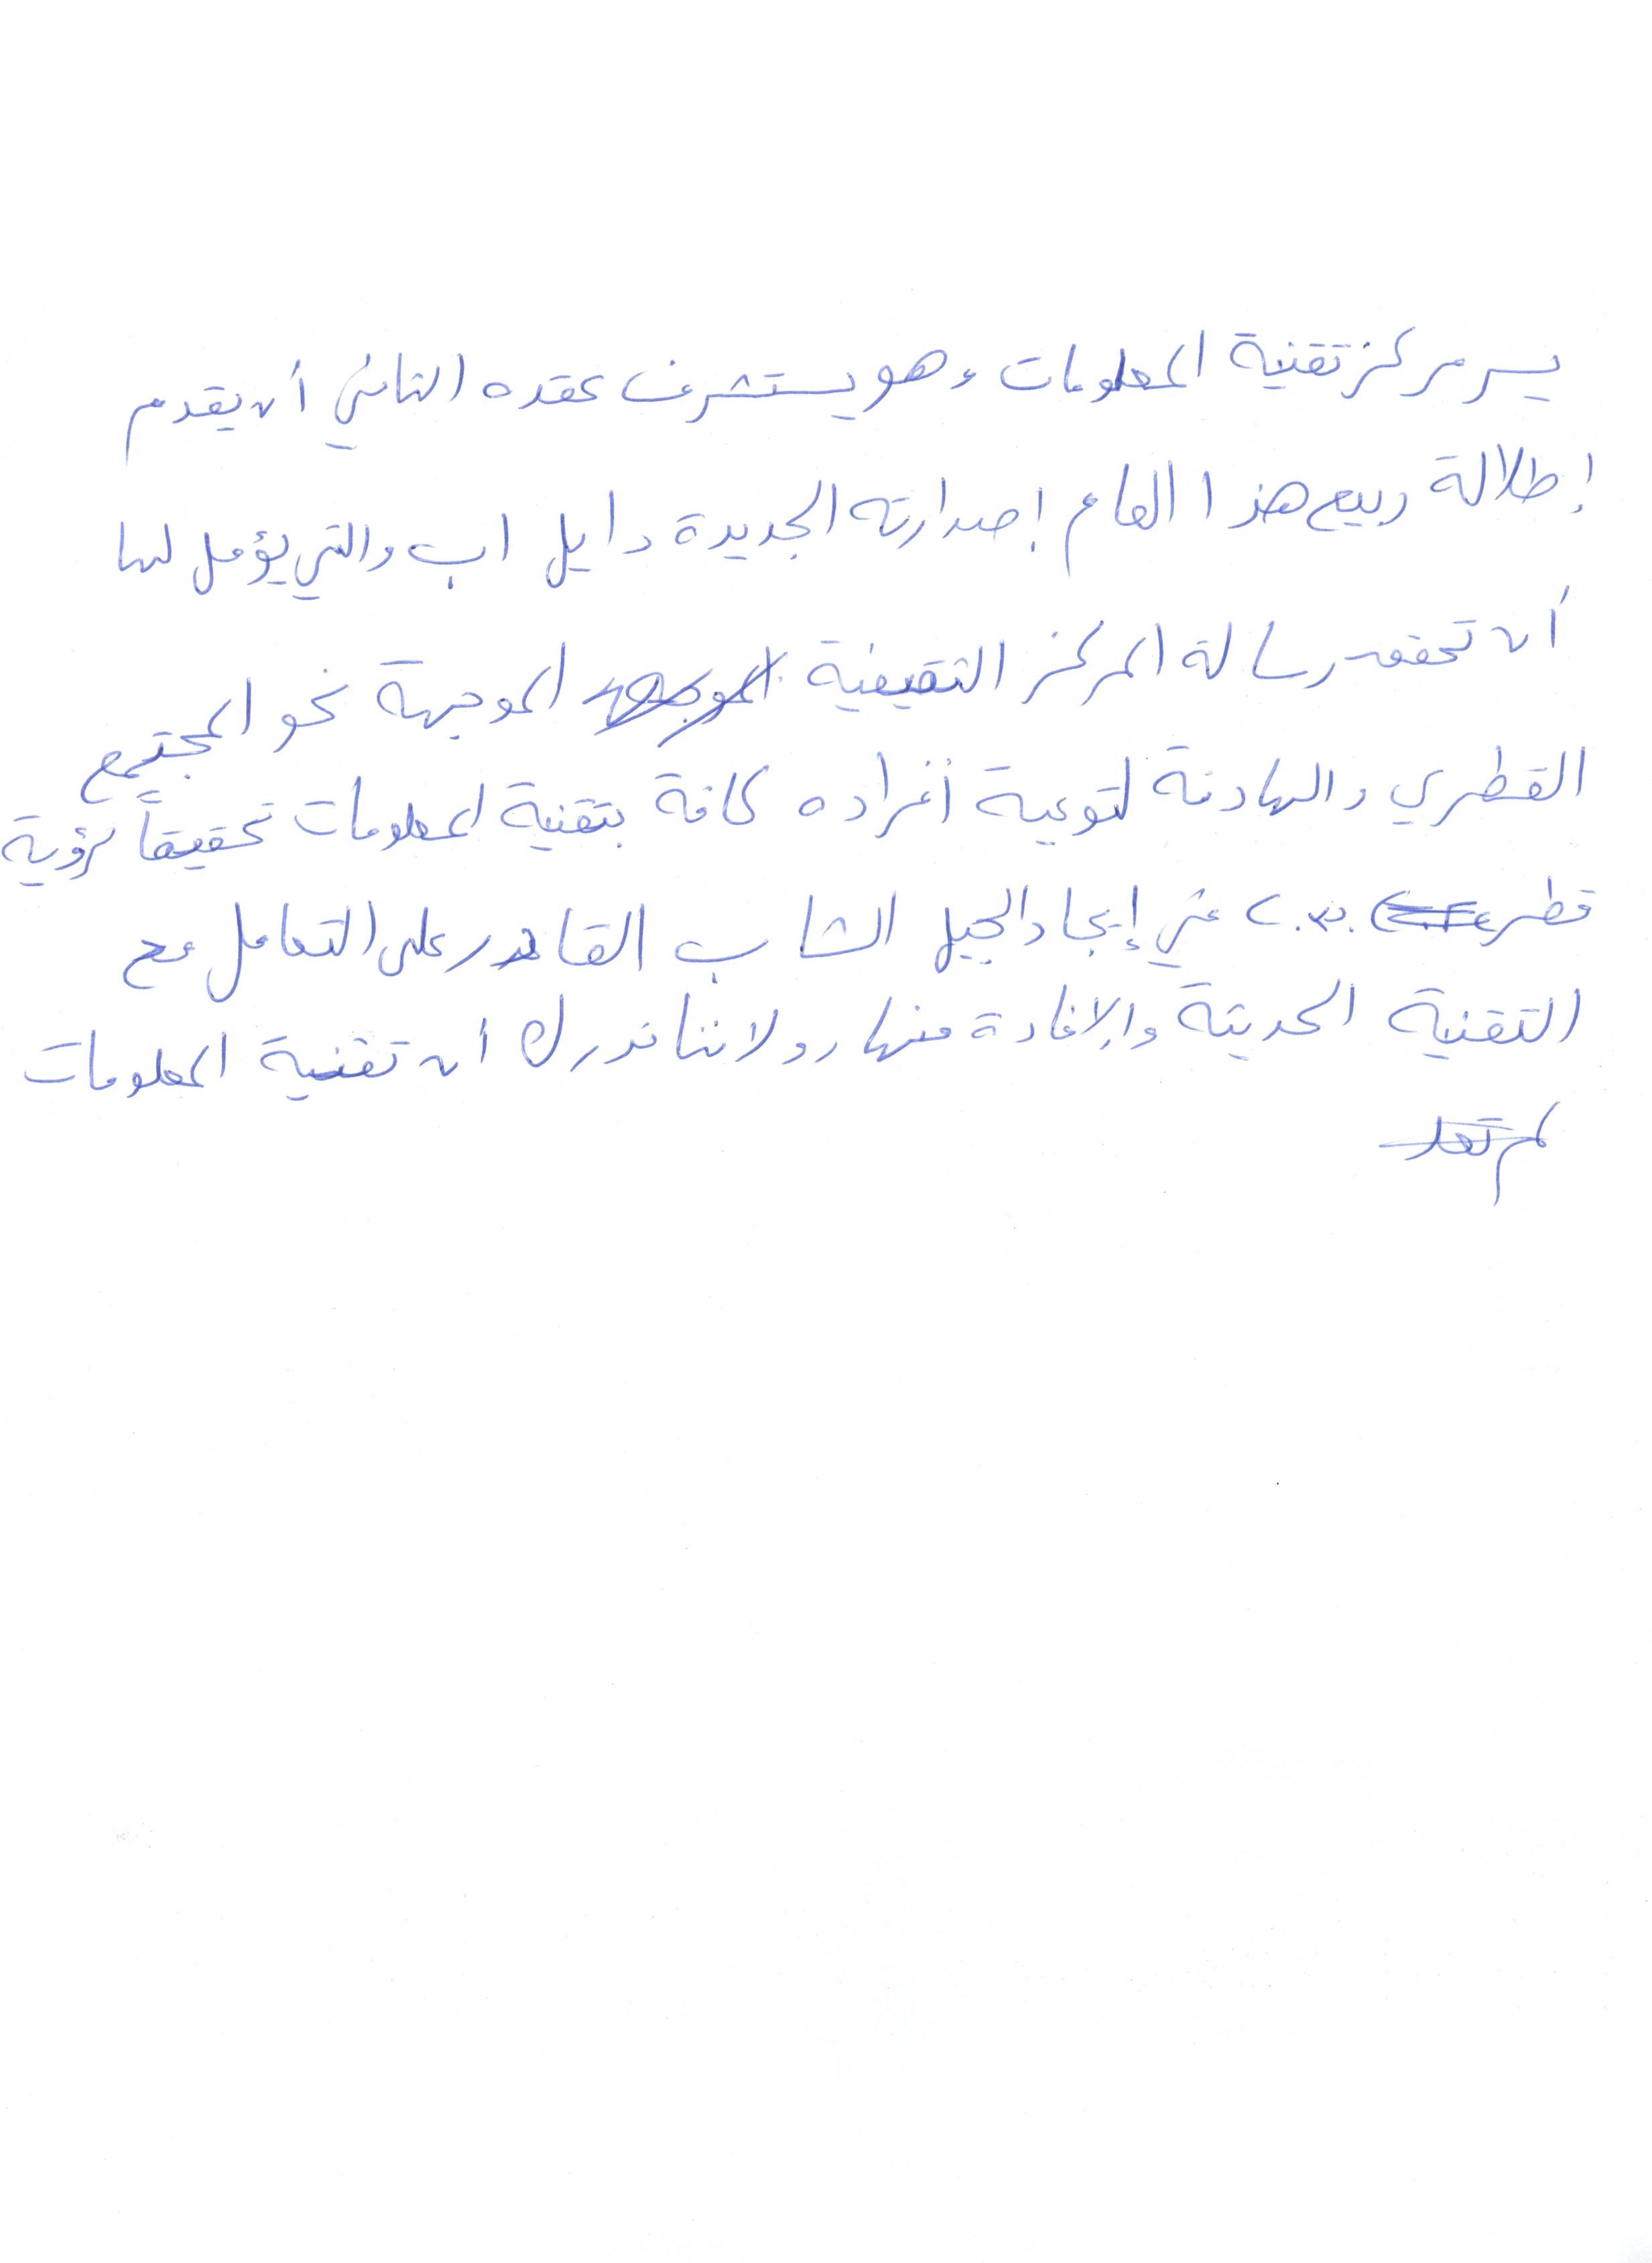 يسر مركز تقنية المعلومات وهو يستشرف عقده الثاني أن يقدم
إطلالة ربيع هذا العام إصدارته الجديدة دايل اب والتي يؤمل لها
أن تحقق رسالة المركز التثقيفية الموجهة نحو المجتمع
القطري والهادفة لتوعية أفراده كافة بتقنية المعلومات تحقيقاً لرؤية
قطر ٢٠٣٠ في إيجاد الجيل الشاب القادر على التعامل مع
التقنية الحديثة والإفادة منها، ولاننا ندرك أن تقنية المعلومات
لم تعد